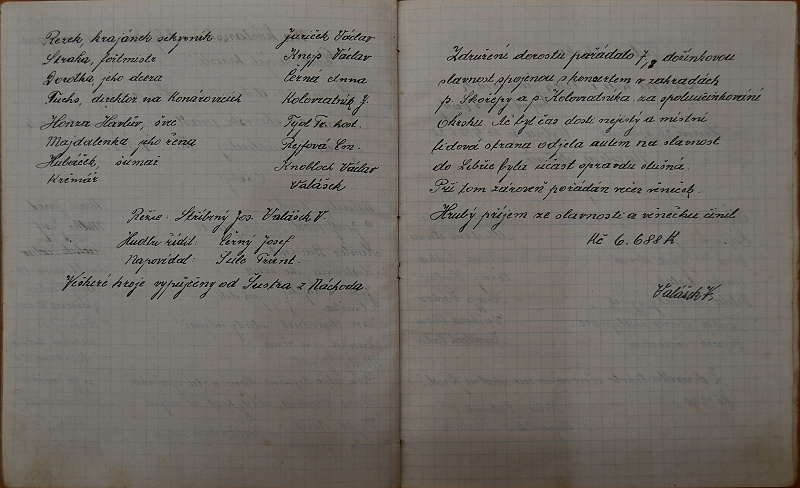 Perek, krajánek sekyrník Juriček Václav
Straha, fořtmistr Knejp Václav
Dorotka jeho dcera Černá Anna
Fuchs, direktor na Konárovicích Kolovratník J.
Honza Havlův, švec Tydl Fr. host.
Majdalenka, jeho žena Rejfová
Hubáček, šumař Knobloch Václav
Krčmář Valášek
Režie: Stříbrný Jos. Valášek V.
Hudbu řídil: Černý Josef
Napovídal: Sule Frant.
Veškeré kroje vypůjčeny od Šustra z Náchoda.
Združení dorostu pořádalo 7/8 dožínkovou
slavnost spojenou s koncertem v zahradách
p. Skořepy a p. Kolovradníka za spoluúčinkování
Okrsku. Ač byl čas dosti nejistý a místní
lidová strana odjela autem na slavnost
do Lebuše byla účast opravdu slušná.
Při tom zároveň pořádán večer věneček.
Hrubý příjem ze slavnosti a věnečku činil
Kč 6.688 K.
Valášek V.